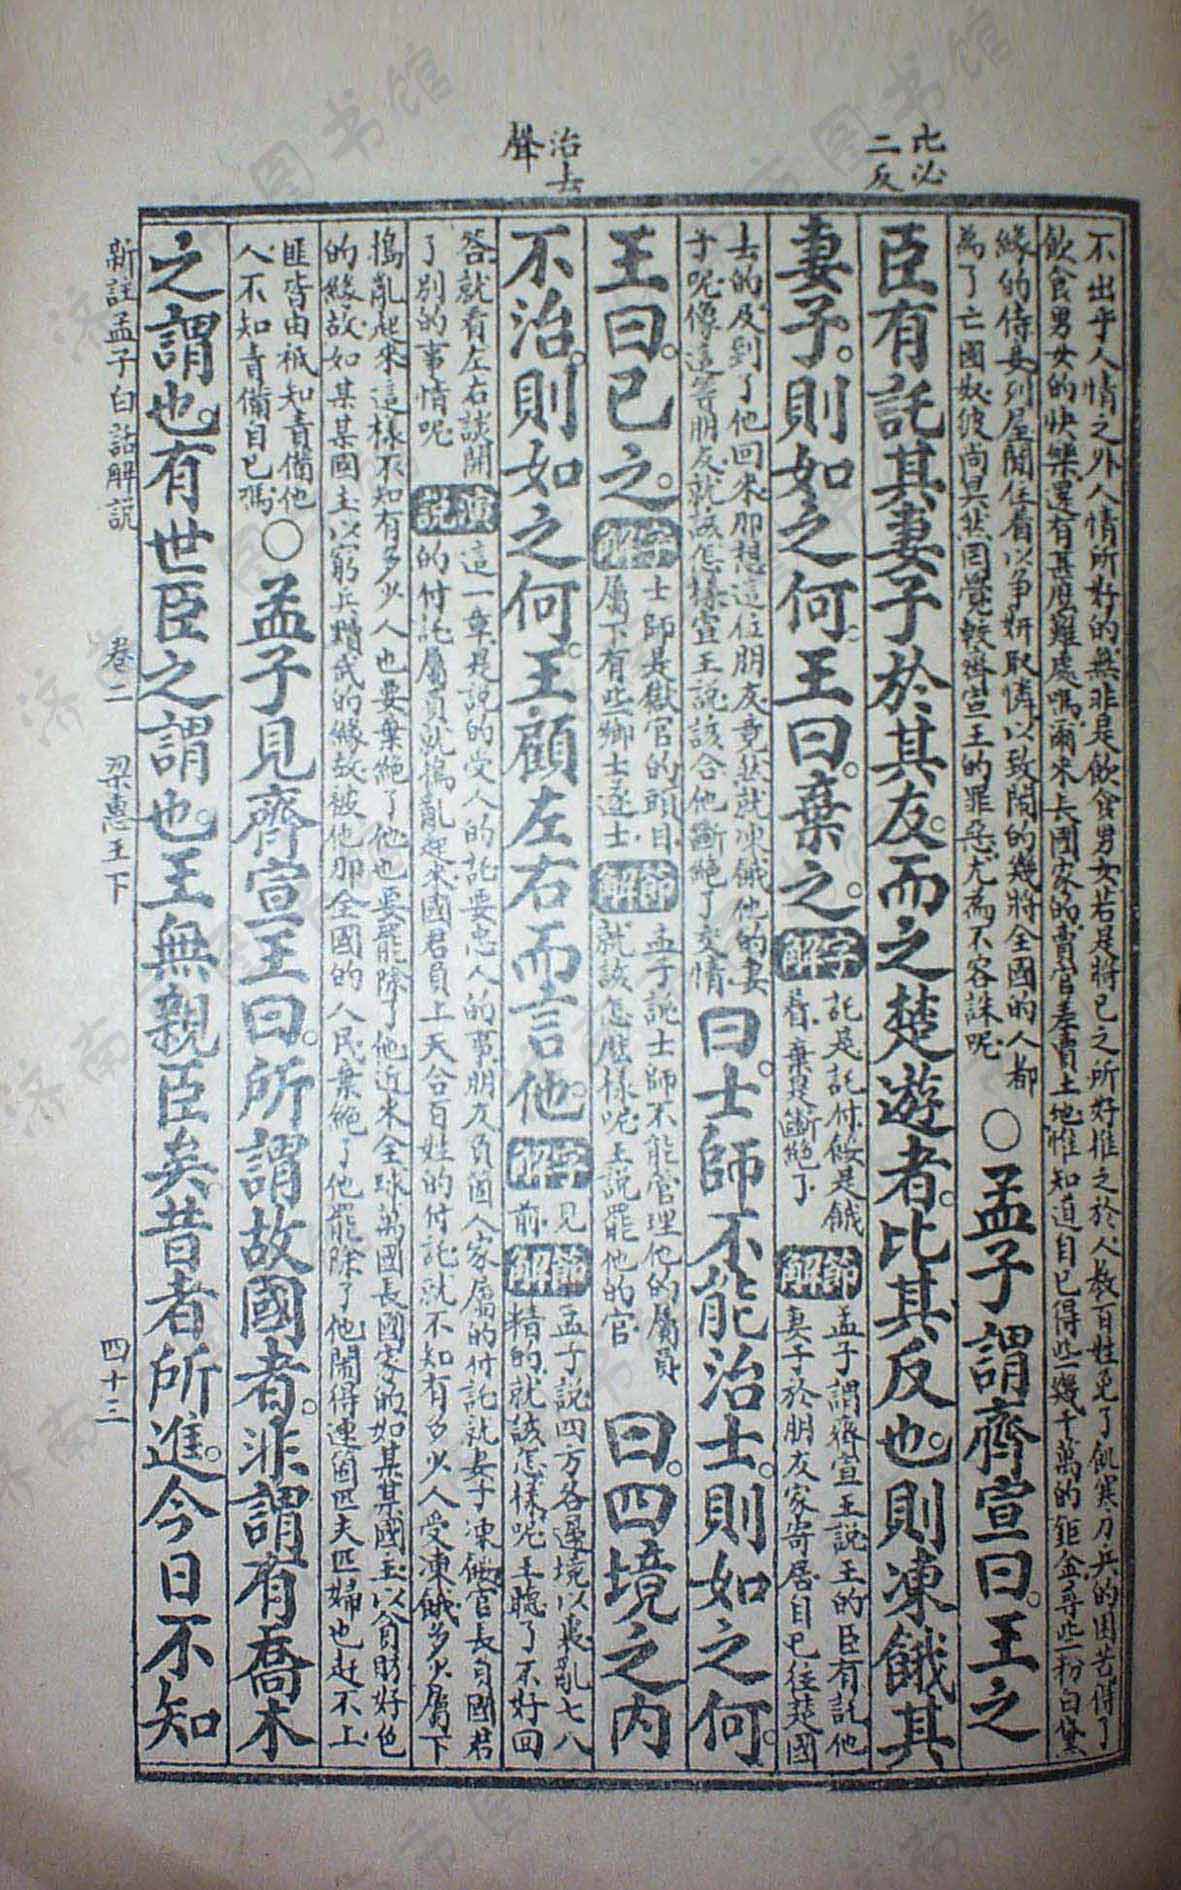 比必
二反
治去
聲
不出乎人情之外人情所好的無非是飲食男女若是將已之所好推之於人教百姓免了飢寒刀兵的困苦得了
飲食男女的快樂還有甚麼難處嗎爾來長國家的賣官產賣土地惟知道自已得些幾千萬的鉅金尋些粉白黛
綠的侍妾列屋閒住看以爭妍取憐以致鬧的幾將全國的人都
為了亡國奴彼尚昊然罔覺較齊宣王的罪惡尤為不容誅呢 〇孟子謂齊宣曰。王之
臣有託其妻子於其友。而之楚遊者。比其反也。則凍餓其
妻子。則如之何。王曰。棄之。字解 託是託付餒是餓
着棄是斷絕了 節解 孟子謂齊宣王說王的臣有託他
妻子於朋友家寄居自已往楚國
去的及到了他回來那想這位朋友竟然就凍餓他的妻
子呢像這等朋友就該怎樣宣王說該合他斷絕了交情 曰。士師不能治士。則如之何。
王曰。已之。字解 士師是獄官的頭目
屬下有些鄉士遂士 節解 孟子說士師不能管理他的屬員
就該怎麼樣呢王說罷他的官 曰。四境之內
不治。則如之何。王顧左右而言他。字解 見
前 節解 孟子說四方各邊境以裏亂七八
糟的就該怎樣呢王聽了不好回
答就看左右談開
了別的事情呢 演說 這一章是說的受人的託要忠人的事朋友負個人家屬的付託就妻子凍餒官長負國君
的付託屬員就搗亂起來國君負上天合百姓的付託就不知有多少人受凍餓多少屬下
搗亂起來這樣不知有多少人也要棄絕了他也要罷除了他近來全球萬國長國家的如某某國主以貪財好色
的緣故如某某國主以窮兵黷武的緣故被他那全國的人民棄絕了他罷除了他鬧得連箇匹夫匹婦也赶不上
匪皆由祗知責備他
人不知責備自已嗎 〇孟子見齊宣王曰。所謂故國者。非謂有喬木
之謂也。有世臣之謂也。王無親臣矣。昔者所進。今日不知
新註孟子白話解説 卷二 梁惠王下 四十三